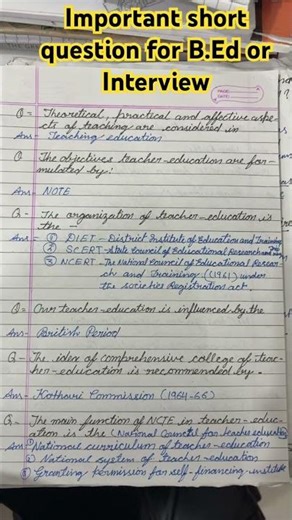 Important short
question for B.Ed or
Interview
PAGE:
DATE:
Q= Theoretical, practical and affective aspe-
cts of teaching are considered in
Ans- Teaching education
Q The objectives teacher-education are for-
mulated by:
Ans- NOTE
Q- The organization of teacher-education is
the -
Ans- = ① DIET - District Institute of Education and Training
② SCERT - State Council of Educational Research and
③ NCERT - The National Council of Educational Resear
ch and Training (1961) under
the societies Registration act.
Q= Our teacher-education is influenced by the
Ans- British Period
Q- The idea of comprehensive college of teac-
her-education is recommended by.
Ans- Kothari Commission (1964-66)
Q= The main function of NCTE in teacher-educ-
ation is the (National Council for teacher education)
Ans= ① National curriculum of teacher-education
② National system of teacher-education
③ Granting permission for self-financing-institute